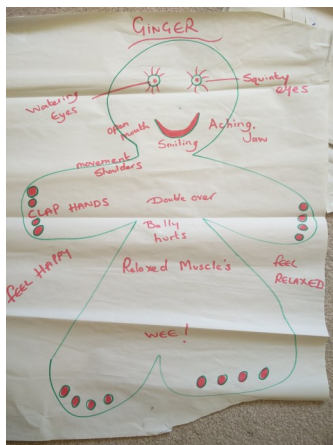 GINGER
Watering
Eyes
Squinty
eyes
open
mouth
Smiling
Aching
Jaw
movement
Shoulders
CLAP HANDS
Double over
Belly
hurts
feel HAPPY
Relaxed Muscle's
feel
RELAXED
WEE!